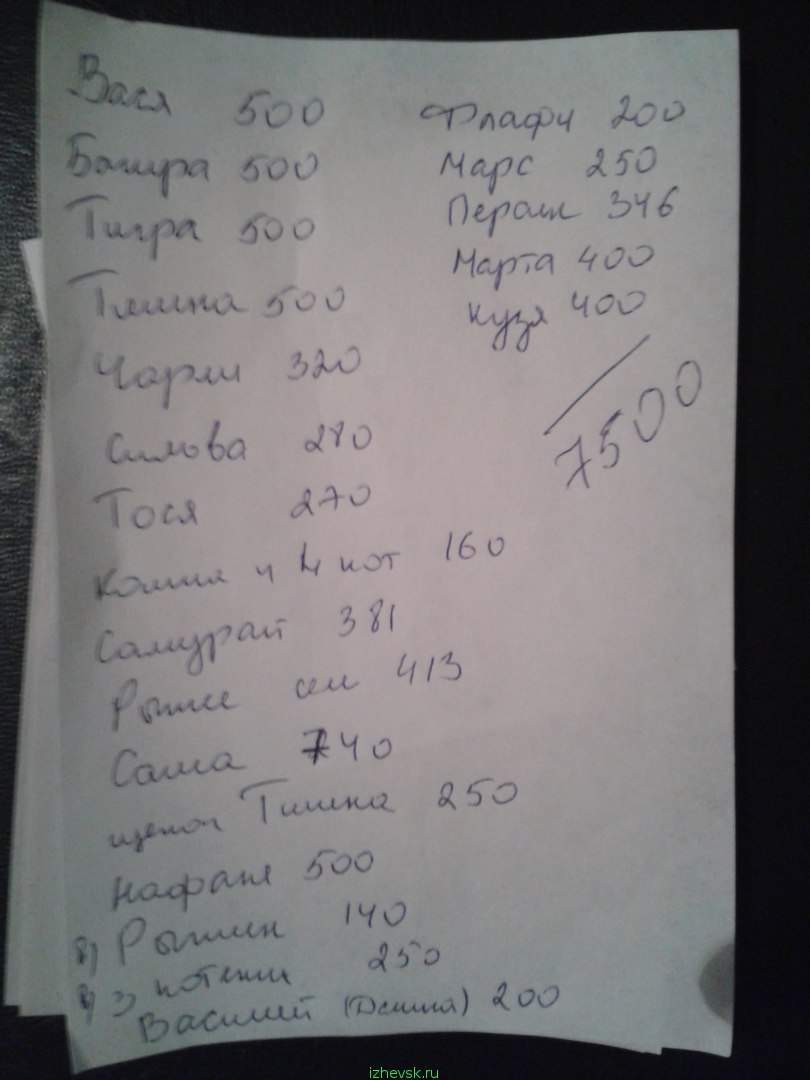 Вася 500
Багира 500
Тигра 500
Тишка 500
Чарли 320
280
Тося 270
Кошка и 4 кот 160
Самурай 381
Рыжее 413
Сама 740
щенок Тишка 250
Нафаня 500
Рыжик 140
3 котенка 250
Василий (Дашка) 200
Флафи 200
Марс 250
Персик 346
Марта 400
Кузя 400
7500
izhevsk.ru